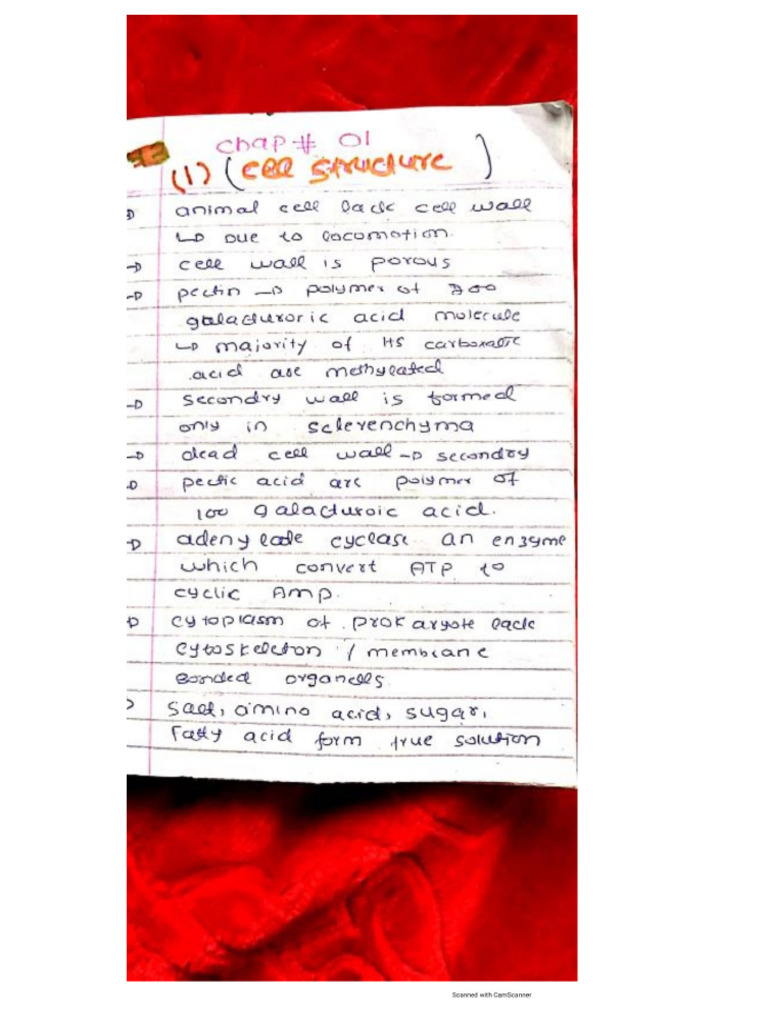 Chap # 01
(1) (Cell Structure)
animal cell lack cell wall
↳ Due to locomotion.
→ cell wall is porous
→ pectin → polymer of 200
galacturoric acid molecule
↳ majority of its carboxalic
acid are methylated
→ secondry wall is formed
only in sclerenchyma
→ dead cell wall → secondry
→ pectic acid are polymer of
100 galacturoic acid.
→ adenylade cyclase an enzyme
which convert ATP to
cyclic AMP.
→ cytoplasm of prokaryote lack
cytoskeleton / membrane
Bonded organells.
→ Salt, amino acid, sugar,
Fatty acid form true solution
Scanned with CamScanner